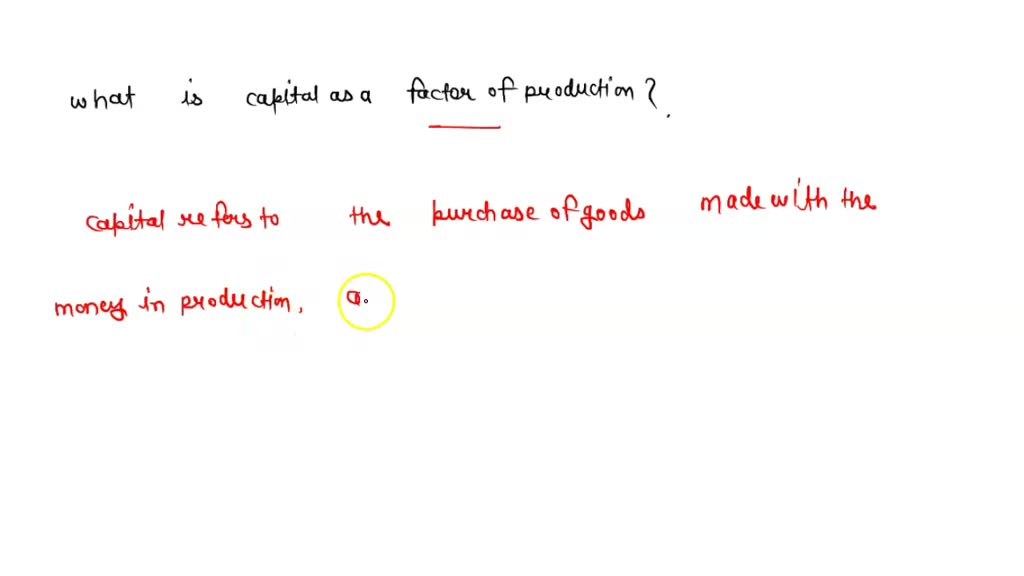 what is capital as a factor of production?.
capital refers to the purchase of goods made with the
money in production, a